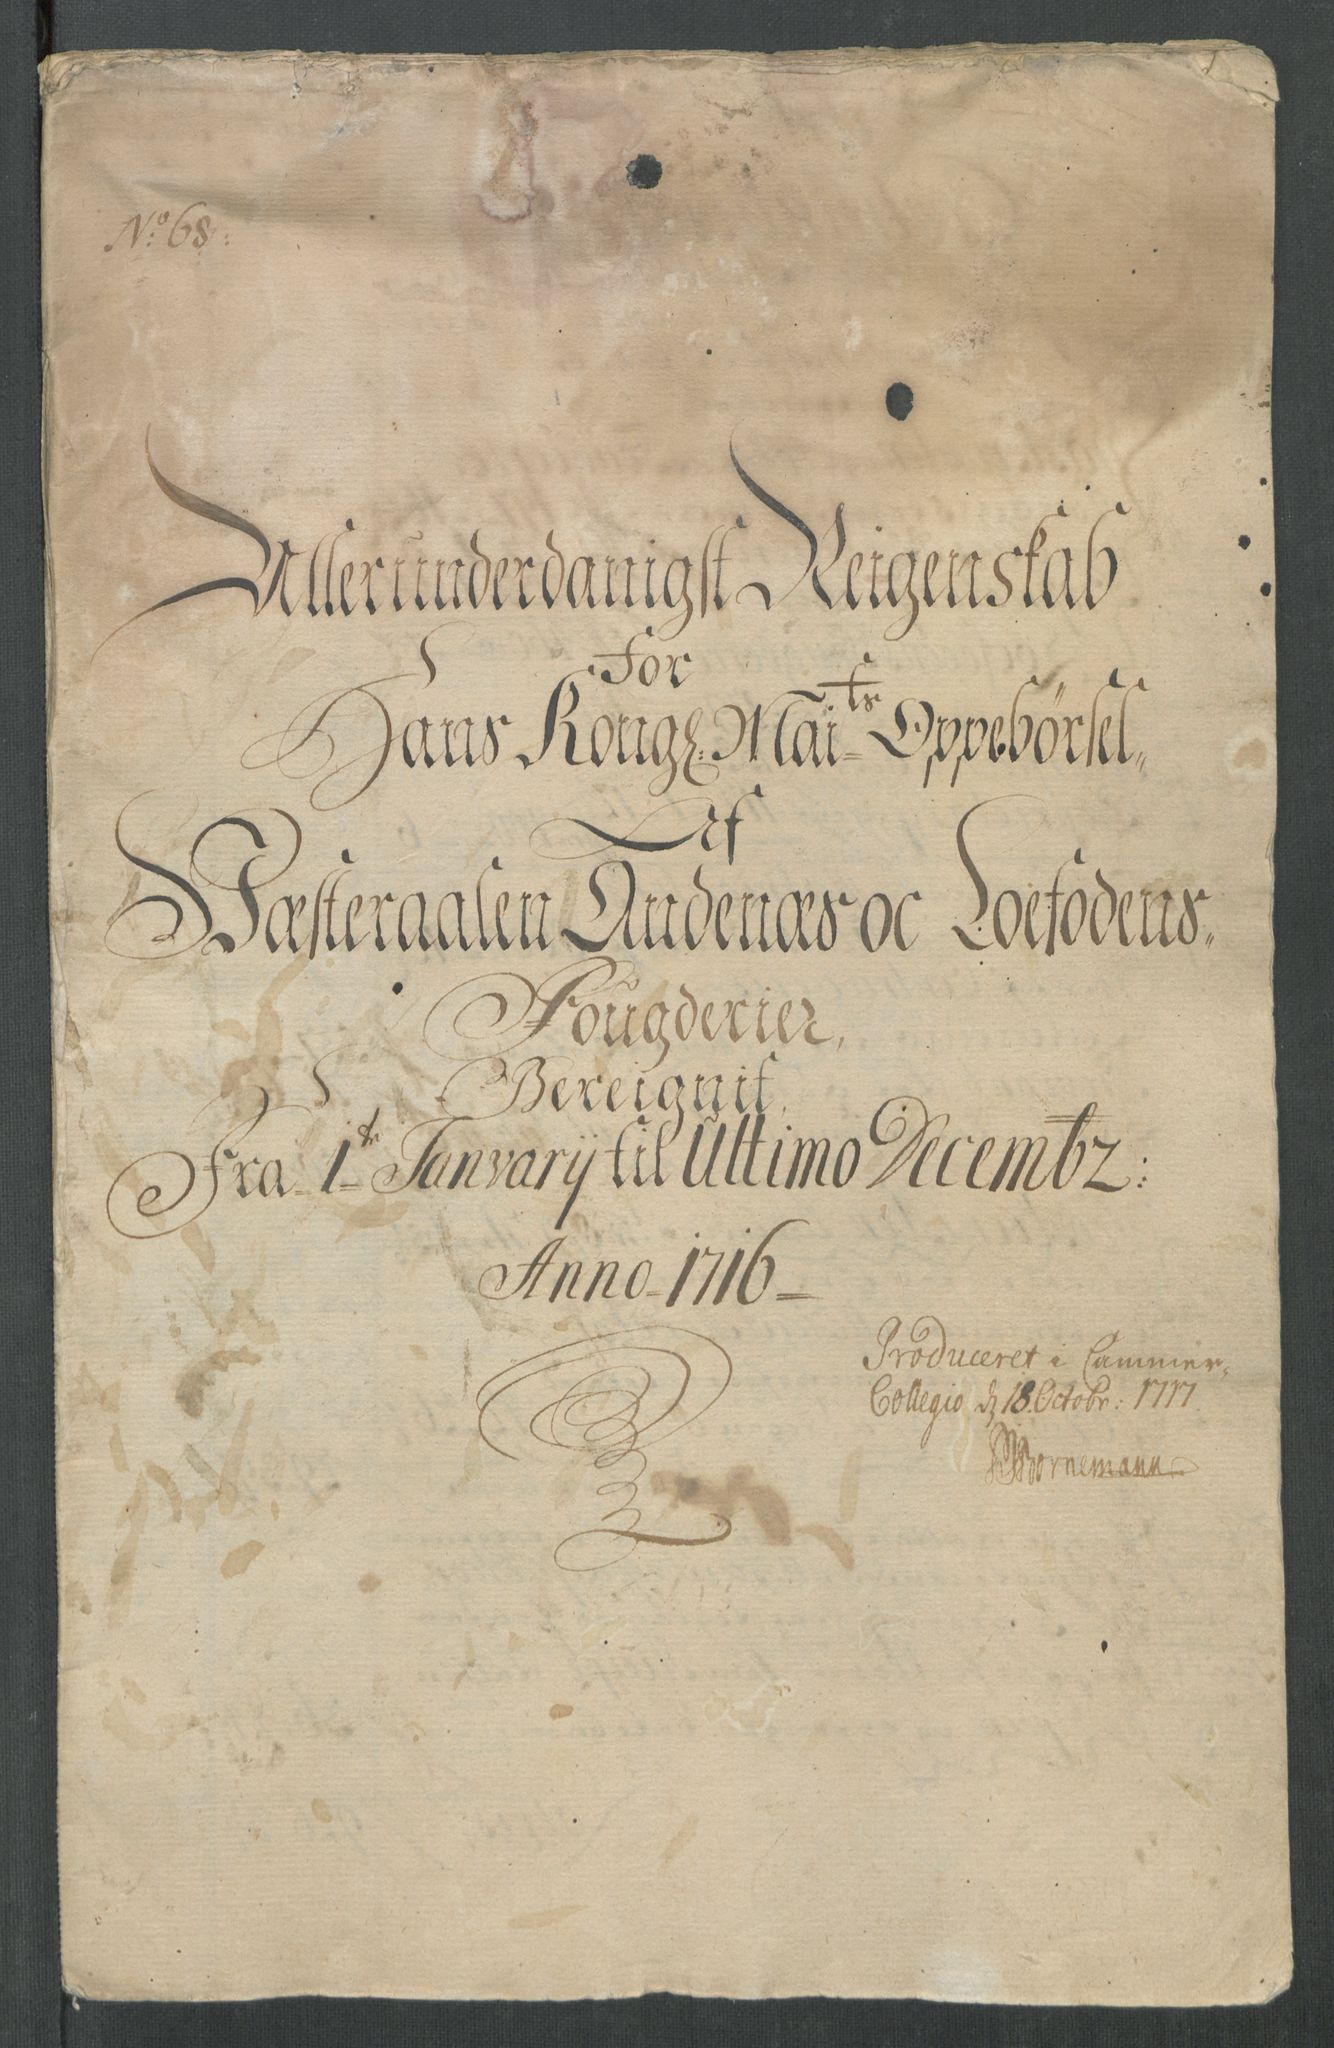 No: 68:
Allerunderdanigst Reigenskab
for
Hans Kongl: Maits Oppebörsel
Af
Wæsteraalen Andenæs oc Loefodens
Fougderier,
Bereignit,
Fra 1te Janvarij til Ultimo Decembr:
Anno 1716
Produceret i Cammer-
Collegio d 18 Octobr: 1717
Bornemann